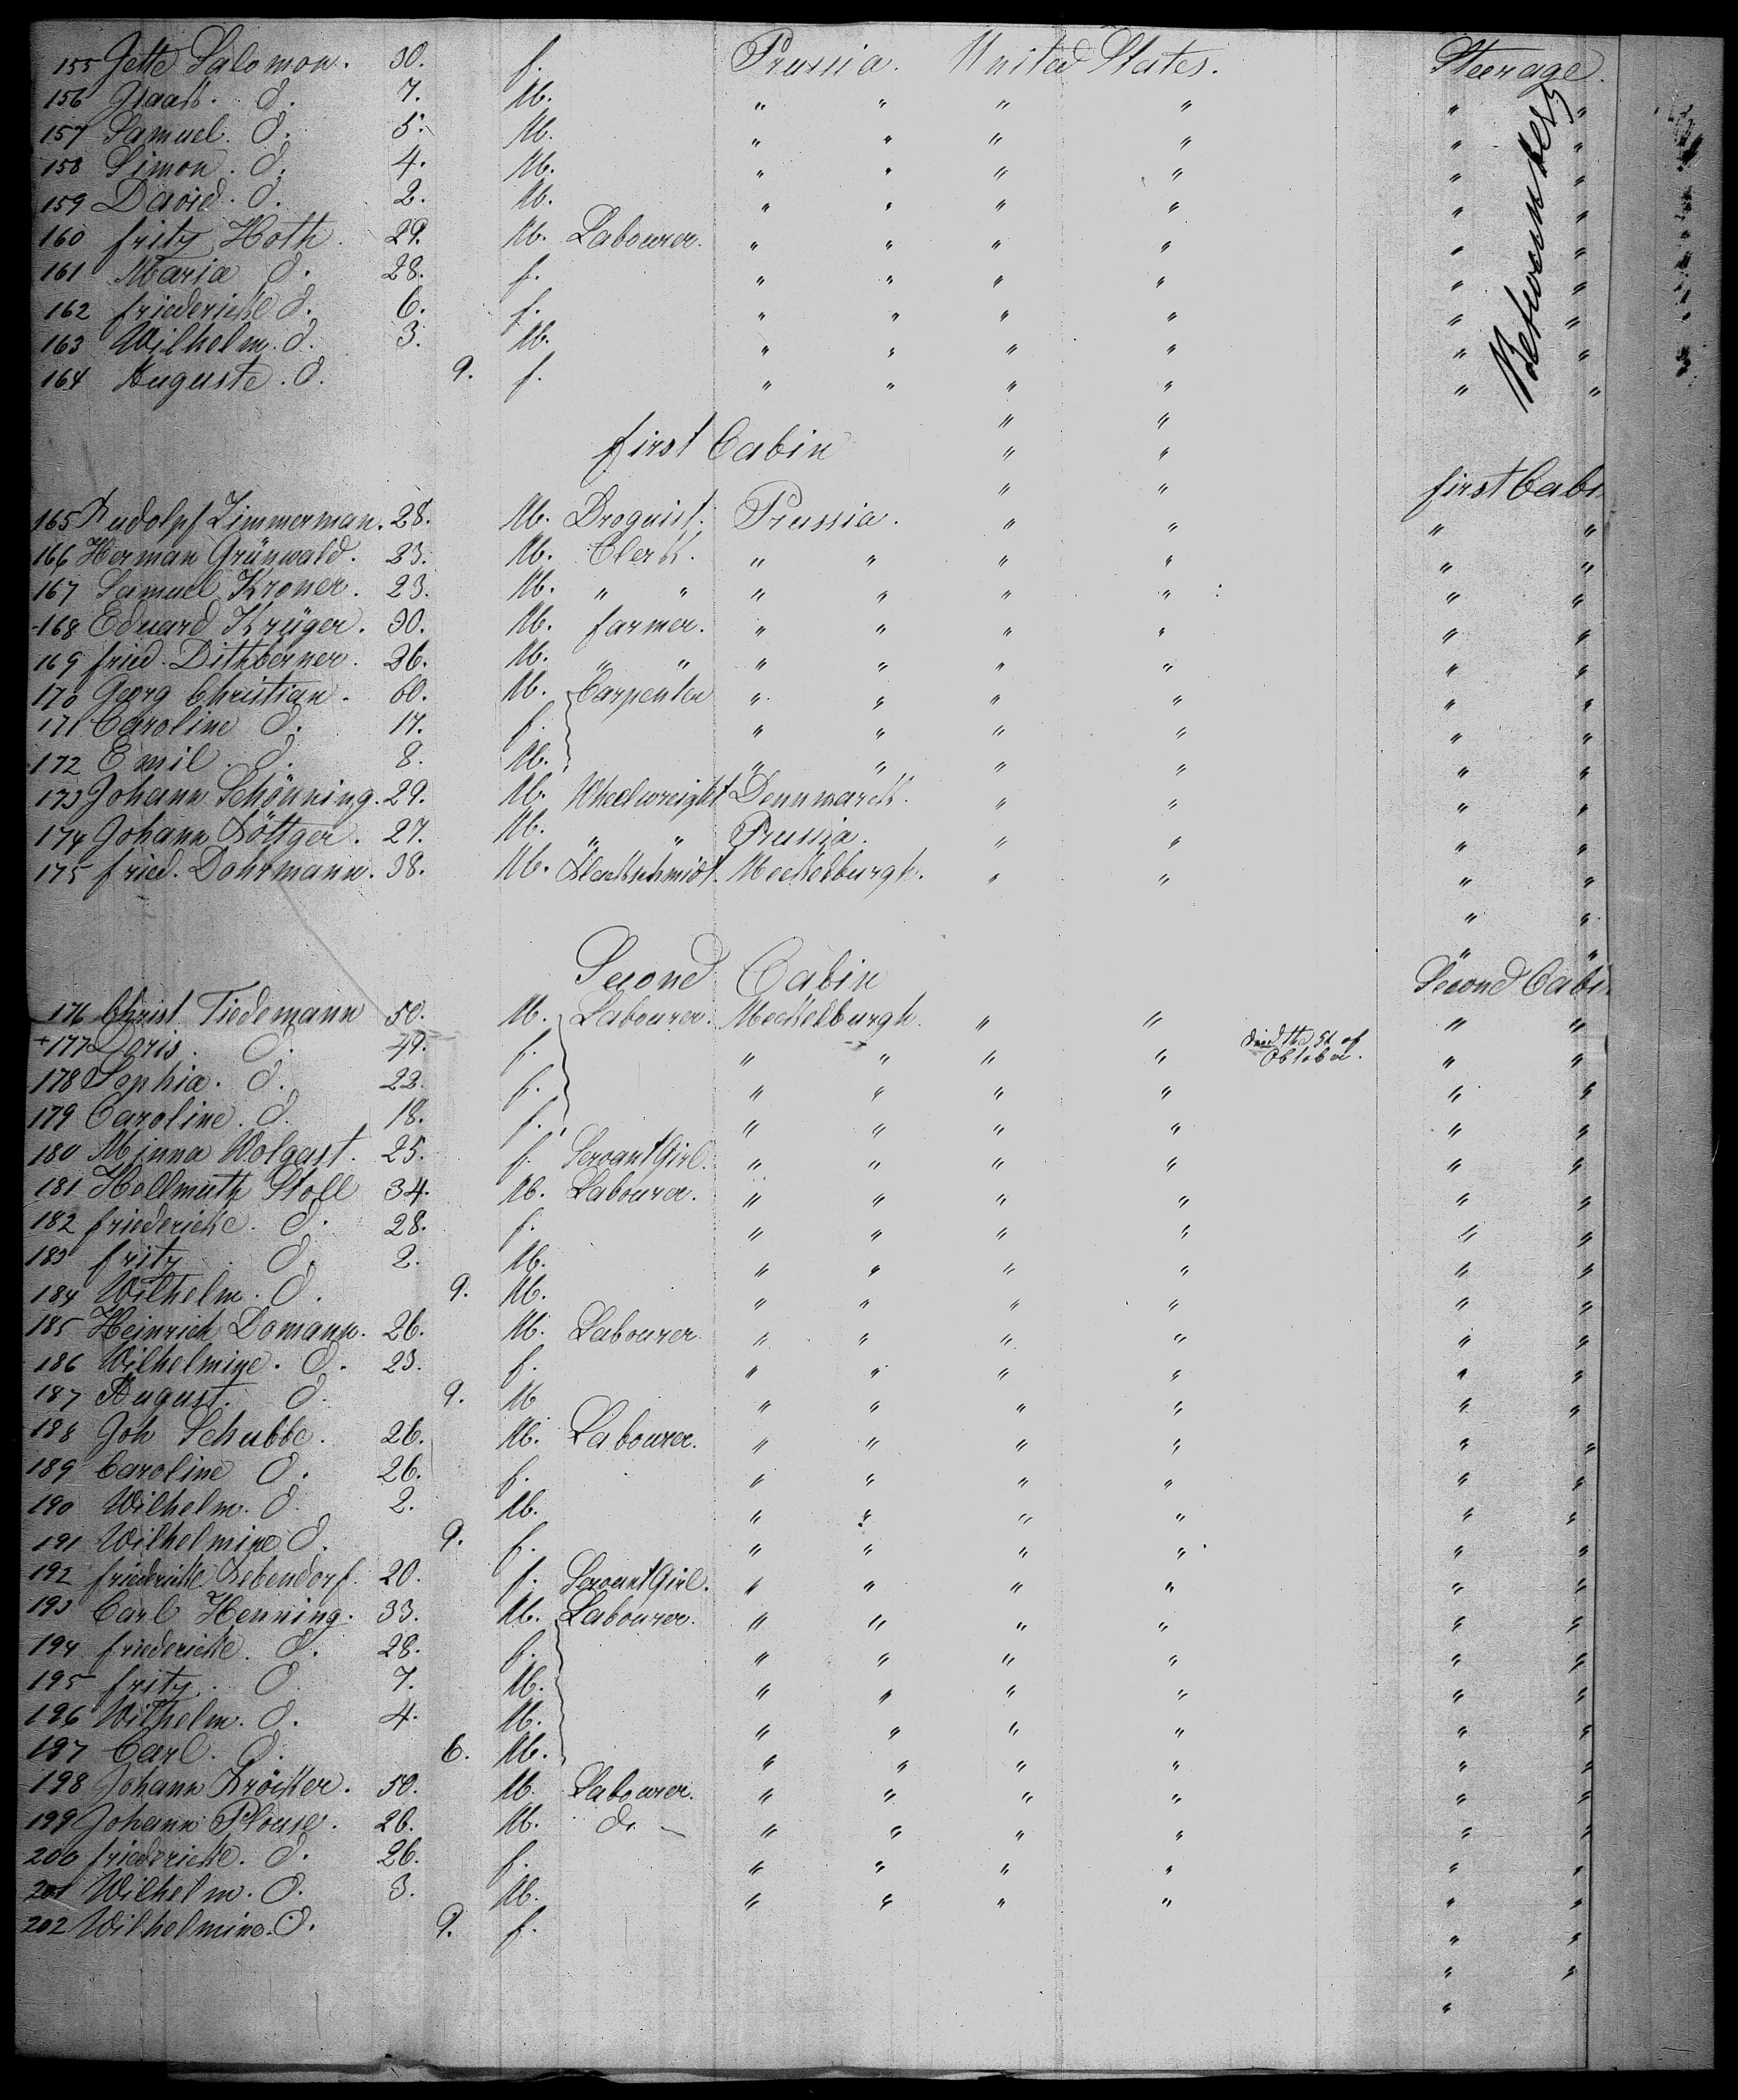 155 Jette Salomon. 30. f. Prussia. United States. Steerage.
156 Isaak. d. 7. M. " " " " " "
157 Samuel. d. 5. M. " " " " " "
158 Simon. d. 4. M. " " " " " "
159 David. d. 2. M. " " " " " "
160 fritz Hoth. 29. M. Labourer. " " " " " "
161 Maria d. 28. f. " " " " " "
162 friedericke d. 6. f. " " " " " "
163 Wilhelm. d. 3. M. " " " " " "
164 Auguste. d. 9. f. " " " " " "
Betweendeck
" "
first Cabin " "
" " first Cabi
165 Rudolpf Zimmerman. 28. M. Droguist. Prussia. " " " "
166 Herman Grünwald. 23. M. Clerk. " " " " " "
167 Samuel Kroner. 23. M. " " " " " " " "
168 Eduard Krüger. 30. M. farmer. " " " " " "
169 fried. Dithberner. 36. M. " " " " " " " "
170 Georg Christian. 60. M. Carpenter " " " " " "
171 Caroline d. 17. f. " " " " " "
172 Emil. d. 8. M. " " " " " "
173 Johann Schönning. 29. M. Wheelwreight Dennmarck. " " " "
174 Johann Böttger. 27. M. " " Prussia. " " " "
175 fried. Dohrmann. 38. M. Blackschmidt. Meckelburgh. " " " "
" "
" "
Second Cabin Second Cabi
176 Christ Tiedemann 50. M. Labourer. Meckelburgh. " " " "
+177 Doris. d. 49. f. " " " " died the 5t of October. " "
178 Sophia. d. 22. f. " " " " " "
179 Caroline. d. 18. f. " " " " " "
180 Minna Wolgast. 25. f. Servant Girl. " " " " " "
181 Hellmuth Stoll 34. M. Labourer. " " " " " "
182 friedericke. d. 28. f. " " " " " "
183 fritz. d. 2. M. " " " " " "
184 Wilhelm. d. 9. M. " " " " " "
185 Heinrich Domann. 26. M. Labourer " " " " " "
186 Wilhelmine. d. 23. f. " " " " " "
187 August. d. 9. M " " " " " "
188 Joh Schubbe. 26. M. Labourer. " " " " " "
189 Caroline d. 26. f. " " " " " "
190 Wilhelm. d. 2. M. " " " " " "
191 Wilhelmine d. 9. f. " " " " " "
192 friedericke Bebendorf. 20. f. Servant Girl. " " " " " "
193 Carl Henning. 33. M. Labourer. " " " " " "
194 friedericke. d. 28. f. " " " " " "
195 fritz. d. 7. M. " " " " " "
196 Wilhelm. d. 4. M. " " " " " "
197 Carl. d. 6. M. " " " " " "
198 Johann Kröcker. 50. M. Labourer. " " " " " "
199 Johann Plouse. 26. M. do " " " " " "
200 friedericke. d. 26. f. " " " " " "
201 Wilhelm. d. 3. M. " " " " " "
202 Wilhelmine. d. 9. f. " "
" "
"